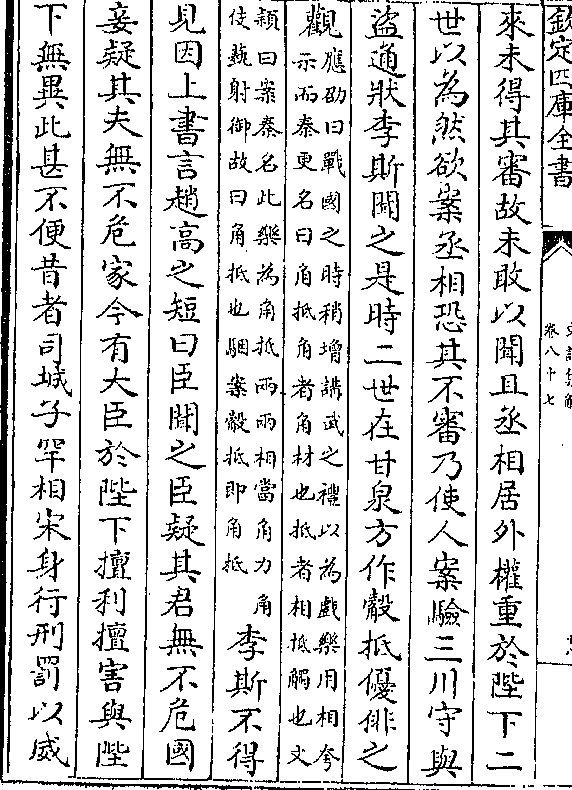 欽定四庫全書
卷八十七
來未得其審故未敢以聞且丞相居外權重於陛下二
世以為然欲案丞相恐其不審乃使人案驗三川守與
盜通狀李斯聞之是時二世在甘泉方作觳抵優俳之
觀應劭曰戰國之時稍增講武之禮以為戲樂用相夸
示而秦更名曰角抵角者角材也抵者相抵觸也文
穎曰案秦名此樂為角抵兩兩相當角力角
伎藝射御故曰角抵也駰案觳抵即角抵
李斯不得
見因上書言趙高之短曰臣聞之臣疑其君無不危國
妾疑其夫無不危家今有大臣於陛下擅利擅害與陛
下無異此甚不便昔者司城子罕相宋身行刑罰以威